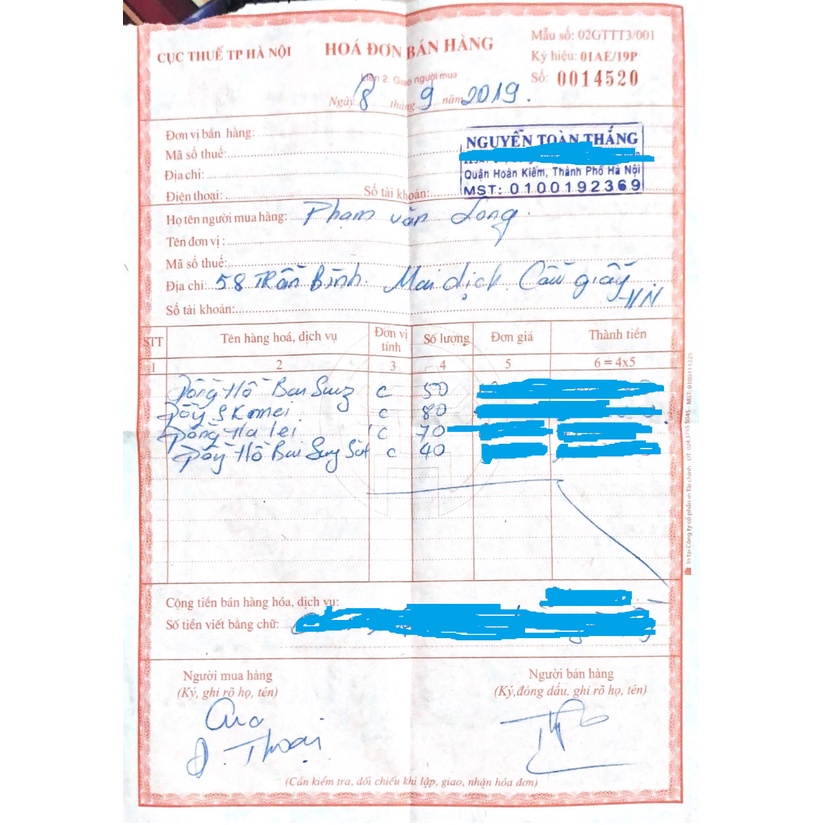 CỤC THUẾ TP HÀ NỘI
HOÁ ĐƠN BÁN HÀNG
Liên 2: Giao người mua
Ngày 8 tháng 9 năm 2019.
Mẫu số: 02GTTT3/001
Ký hiệu: 01AE/19P
Số: 0014520
Đơn vị bán hàng:
Mã số thuế:
Địa chỉ:
Điện thoại: Số tài khoản:
NGUYỄN TOÀN THẮNG
Quận Hoàn Kiếm, Thành Phố Hà Nội
MST: 0100192369
Họ tên người mua hàng: Phạm Văn Long.
Tên đơn vị:
Mã số thuế:
Địa chỉ: 58 Trần Bình. Mai dịch Cầu giấy - HN
Số tài khoản:
STT Tên hàng hoá, dịch vụ Đơn vị tính Số lượng Đơn giá Thành tiền
1 2 3 4 5 6 = 4x5
Hồ c 50
c 80
c 70
Hồ c 40
Cộng tiền bán hàng hóa, dịch vụ:
Số tiền viết bằng chữ:
Người mua hàng
(Ký, ghi rõ họ, tên)
Người bán hàng
(Ký, đóng dấu, ghi rõ họ, tên)
Thoại
(Cần kiểm tra, đối chiếu khi lập, giao, nhận hóa đơn)